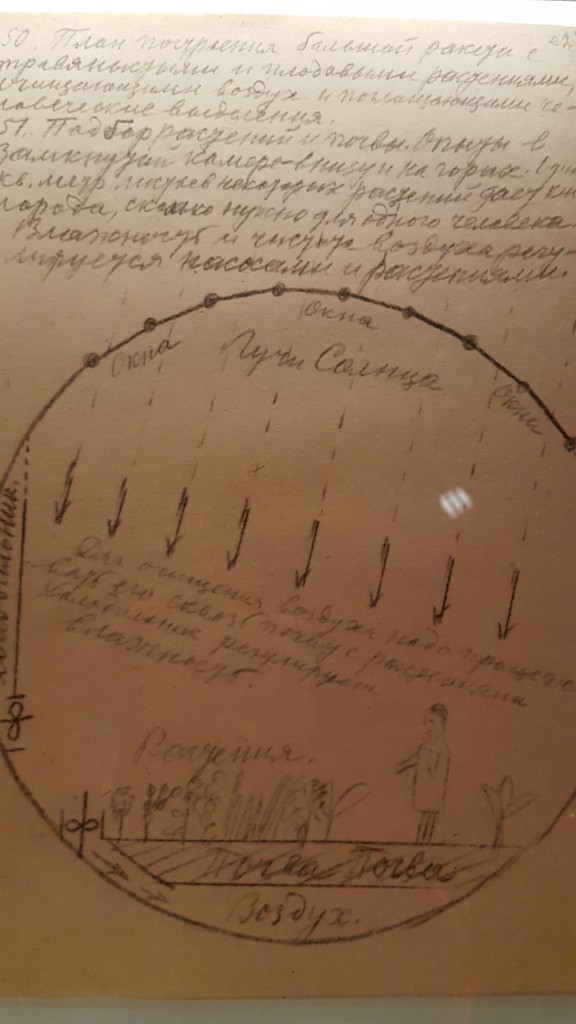 50. План построения большой ракеты с
травянистыми и плодовыми растениями,
очищающими воздух и поглощающими че-
ловеческие выделения.
51. Подбор растений и почвы. Опыты в
замкнутой камере-внизу и на горах. 1
кв. метр листьев некоторых растений дает ки
лорода, сколько нужно для одного человека.
Влажность и чистота воздуха регу-
лируется насосами и растениями.
Окна
Окна
Лучи Солнца
Окна
Холодильник.
Для очищения воздуха надо
его сквозь почву с растениями
Холодильник регулирует
влажность.
Растения.
Почва Почва
Воздух.